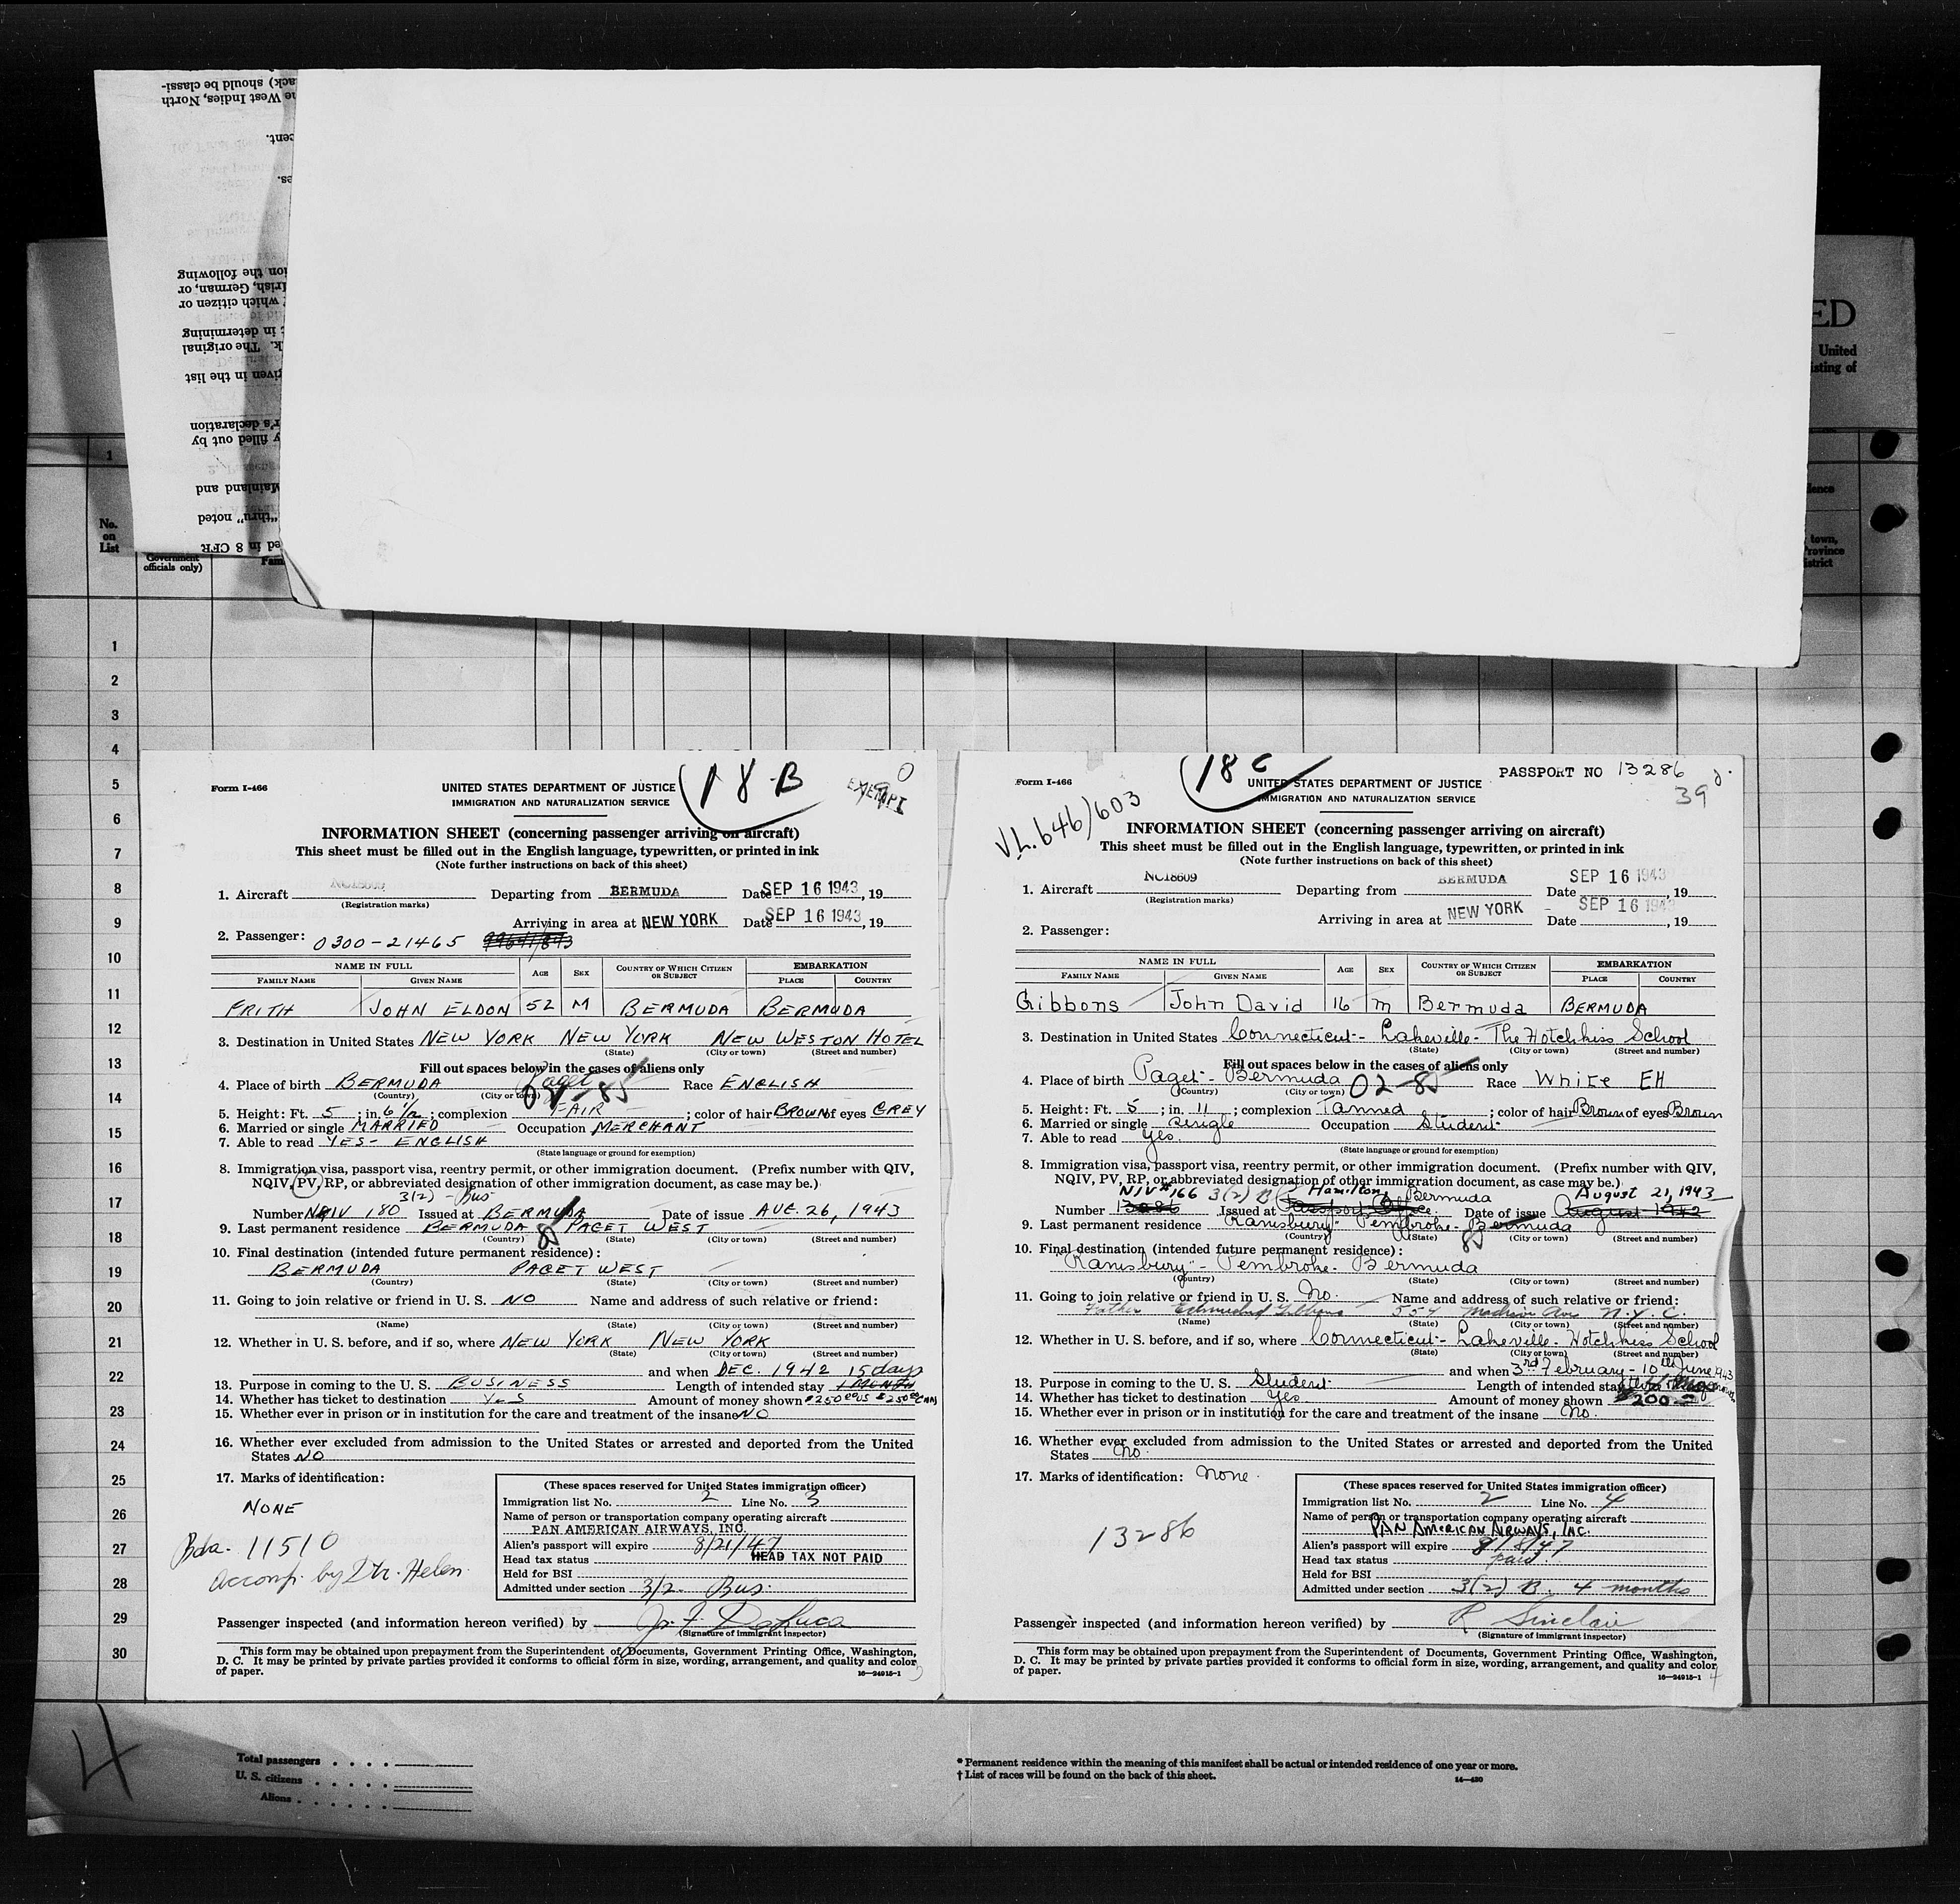 ack) should be classi-
he West Indies, North
cent.
es.
ion the following
Irish, German, or
which citizen or
t in determining
k. The original
given in the list
r's declaration
y filled out by
Mainland and
"thru" noted
ed in 8 CFR
ED
United
isting of
1
No.
on
List
Government
officials only)
Fam
lence
town,
Province
istrict
1
2
3
4
5
6
7
8
9
10
11
12
13
14
15
16
17
18
19
20
21
22
23
24
25
26
27
28
29
30
Form I-466
UNITED STATES DEPARTMENT OF JUSTICE
18-B
EXEMPT
IMMIGRATION AND NATURALIZATION SERVICE
INFORMATION SHEET (concerning passenger arriving on aircraft)
This sheet must be filled out in the English language, typewritten, or printed in ink
(Note further instructions on back of this sheet)
1. Aircraft NC18609 Departing from BERMUDA Date SEP 16 1943, 19
(Registration marks)
Arriving in area at NEW YORK Date SEP 16 1943, 19
2. Passenger: 0300-21465
NAME IN FULL AGE SEX COUNTRY OF WHICH CITIZEN OR SUBJECT EMBARKATION
FAMILY NAME GIVEN NAME PLACE COUNTRY
FRITH JOHN ELDON 52 M BERMUDA BERMUDA
3. Destination in United States NEW YORK NEW YORK NEW WESTON HOTEL
(State) (City or town) (Street and number)
Fill out spaces below in the cases of aliens only
4. Place of birth BERMUDA Paget Race ENGLISH
(Country) (City or town)
5. Height: Ft. 5; in. 6 1/2; complexion FAIR; color of hair BROWN of eyes GREY
6. Married or single MARRIED Occupation MERCHANT
7. Able to read YES - ENGLISH
(State language or ground for exemption)
8. Immigration visa, passport visa, reentry permit, or other immigration document. (Prefix number with QIV,
NQIV, PV, RP, or abbreviated designation of other immigration document, as case may be.)
3(2) - Bus
Number NIV 180 Issued at BERMUDA Date of issue AUG. 26, 1943
9. Last permanent residence BERMUDA 85 PAGET WEST
(Country) (State) (City or town) (Street and number)
10. Final destination (intended future permanent residence):
BERMUDA PAGET WEST
(Country) (State) (City or town) (Street and number)
11. Going to join relative or friend in U. S. NO Name and address of such relative or friend:
(Name) (State) (City or town) (Street and number)
12. Whether in U. S. before, and if so, where NEW YORK NEW YORK
(State) (City or town) (Street and number)
and when DEC. 1942 15 days
13. Purpose in coming to the U. S. BUSINESS Length of intended stay 1 MONTH
14. Whether has ticket to destination YES Amount of money shown $250 00 US $250 00 CAN
15. Whether ever in prison or in institution for the care and treatment of the insane NO
16. Whether ever excluded from admission to the United States or arrested and deported from the United
States NO
17. Marks of identification:
NONE
Bda. 11510
accomp. by Dtr. Helen
(These spaces reserved for United States immigration officer)
Immigration list No. 2 Line No. 3
Name of person or transportation company operating aircraft
PAN AMERICAN AIRWAYS, INC.
Alien's passport will expire 8/21/47
Head tax status HEAD TAX NOT PAID
Held for BSI
Admitted under section 3/2. Bus.
Passenger inspected (and information hereon verified) by
(Signature of immigrant inspector)
This form may be obtained upon prepayment from the Superintendent of Documents, Government Printing Office, Washington,
D. C. It may be printed by private parties provided it conforms to official form in size, wording, arrangement, and quality and color
of paper.
16-24915-1
Form I-466
18 C
UNITED STATES DEPARTMENT OF JUSTICE
PASSPORT NO 13286
39
IMMIGRATION AND NATURALIZATION SERVICE
V.L. 646/603
INFORMATION SHEET (concerning passenger arriving on aircraft)
This sheet must be filled out in the English language, typewritten, or printed in ink
(Note further instructions on back of this sheet)
1. Aircraft NC18609 Departing from BERMUDA Date SEP 16 1943, 19
(Registration marks)
Arriving in area at NEW YORK Date SEP 16 1943, 19
2. Passenger:
NAME IN FULL AGE SEX COUNTRY OF WHICH CITIZEN OR SUBJECT EMBARKATION
FAMILY NAME GIVEN NAME PLACE COUNTRY
Gibbons John David 16 m Bermuda BERMUDA
3. Destination in United States Connecticut - Lakeville - The Hotchkiss School
(State) (City or town) (Street and number)
Fill out spaces below in the cases of aliens only
4. Place of birth Paget - Bermuda 02-85 Race White EH
(Country) (City or town)
5. Height: Ft. 5; in. 11; complexion Tanned; color of hair Brown of eyes Brown
6. Married or single Single Occupation Student
7. Able to read Yes.
(State language or ground for exemption)
8. Immigration visa, passport visa, reentry permit, or other immigration document. (Prefix number with QIV,
NQIV, PV, RP, or abbreviated designation of other immigration document, as case may be.)
NIV #166 3(2) B Hamilton, Bermuda August 21, 1943
Number 13286 Issued at Passport Office Date of issue August 1942
9. Last permanent residence Ramsbury - Pembroke - Bermuda
(Country) (State) 85 (City or town) (Street and number)
10. Final destination (intended future permanent residence):
Ramsbury - Pembroke - Bermuda
(Country) (State) (City or town) (Street and number)
11. Going to join relative or friend in U. S. No. Name and address of such relative or friend:
Father Edmund Gibbons 554 Madison Ave N.Y.C.
(Name) (State) (City or town) (Street and number)
12. Whether in U. S. before, and if so, where Connecticut - Lakeville - Hotchkiss School
(State) (City or town) (Street and number)
and when 3rd February - 10th June 1943
13. Purpose in coming to the U. S. Student Length of intended stay
14. Whether has ticket to destination Yes Amount of money shown $200
15. Whether ever in prison or in institution for the care and treatment of the insane No.
16. Whether ever excluded from admission to the United States or arrested and deported from the United
States No.
17. Marks of identification: None.
13286
(These spaces reserved for United States immigration officer)
Immigration list No. 2 Line No. 4
Name of person or transportation company operating aircraft
PAN AMERICAN AIRWAYS, INC.
Alien's passport will expire 8/8/47
Head tax status Paid
Held for BSI
Admitted under section 3(2) B. 4 months
Passenger inspected (and information hereon verified) by R Sinclair
(Signature of immigrant inspector)
This form may be obtained upon prepayment from the Superintendent of Documents, Government Printing Office, Washington,
D. C. It may be printed by private parties provided it conforms to official form in size, wording, arrangement, and quality and color
of paper.
16-24915-1
4
Total passengers
U. S. citizens
Aliens
* Permanent residence within the meaning of this manifest shall be actual or intended residence of one year or more.
† List of races will be found on the back of this sheet.
14-420